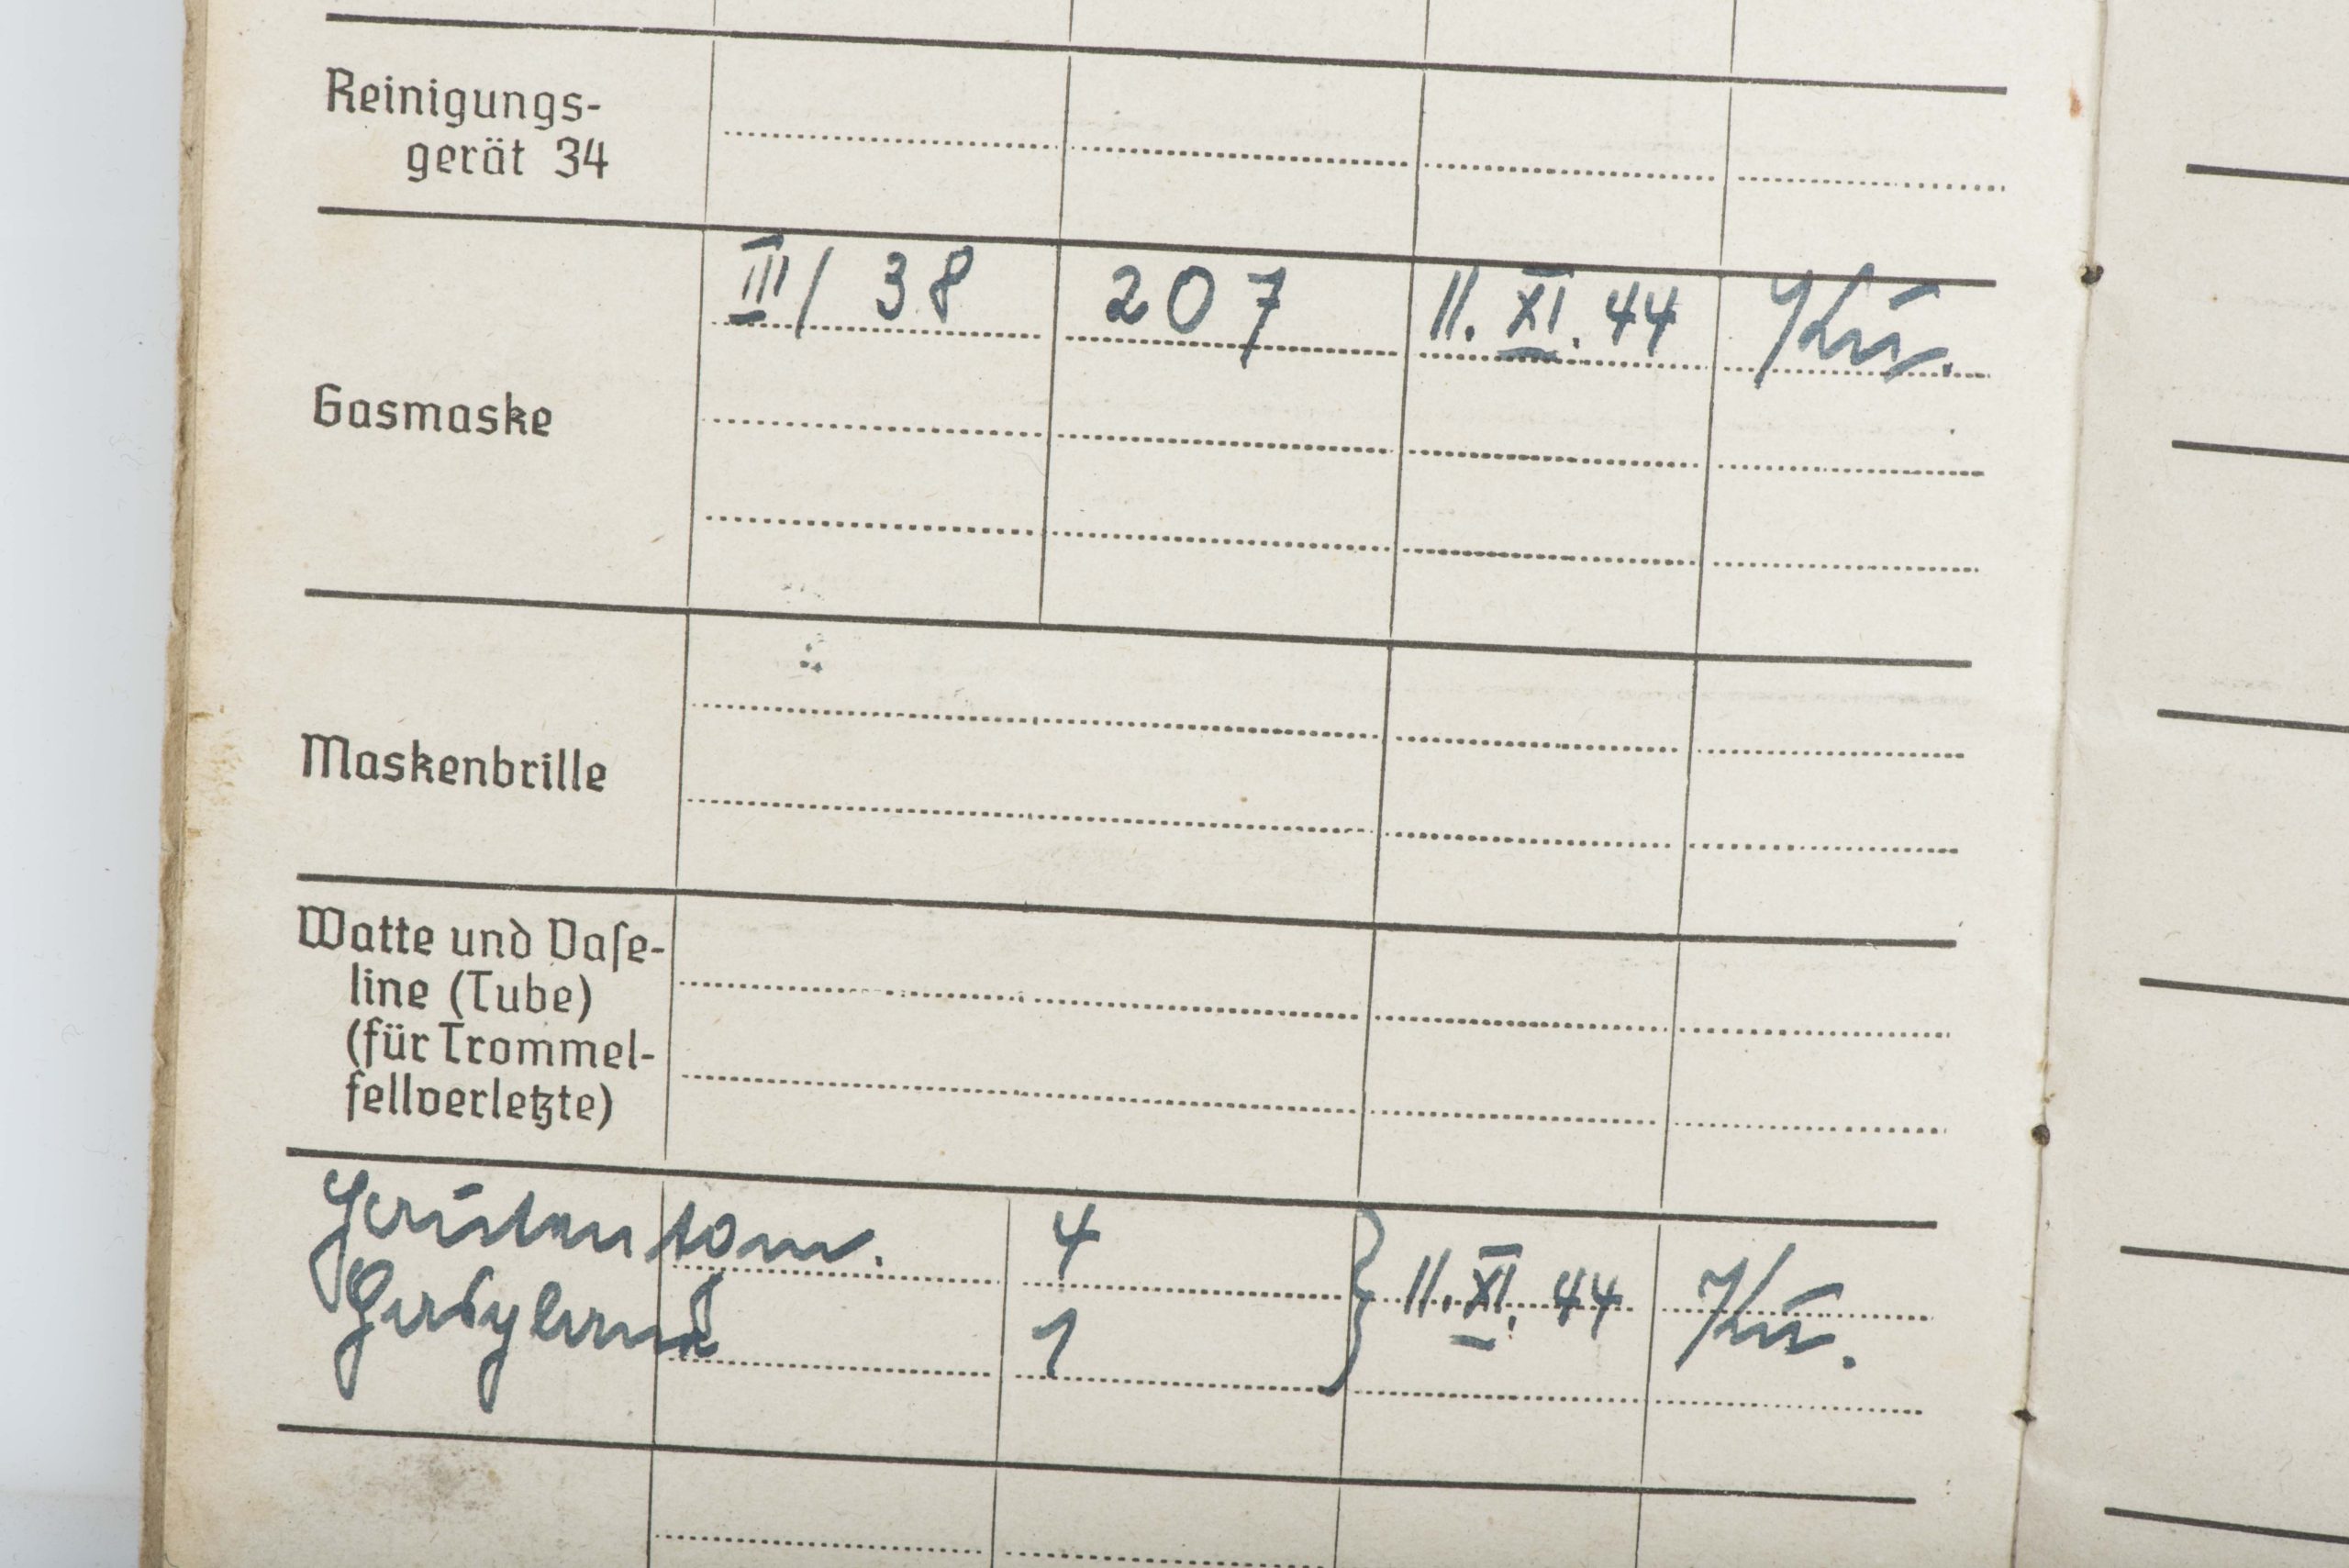 Reinigungs-
gerät 34
III / 38 207 11. XI. 44
Gasmaske
Maskenbrille
Watte und Vaſe-
line (Tube)
(für Trommel-
fellverletzte)
4
11. XI. 44
1